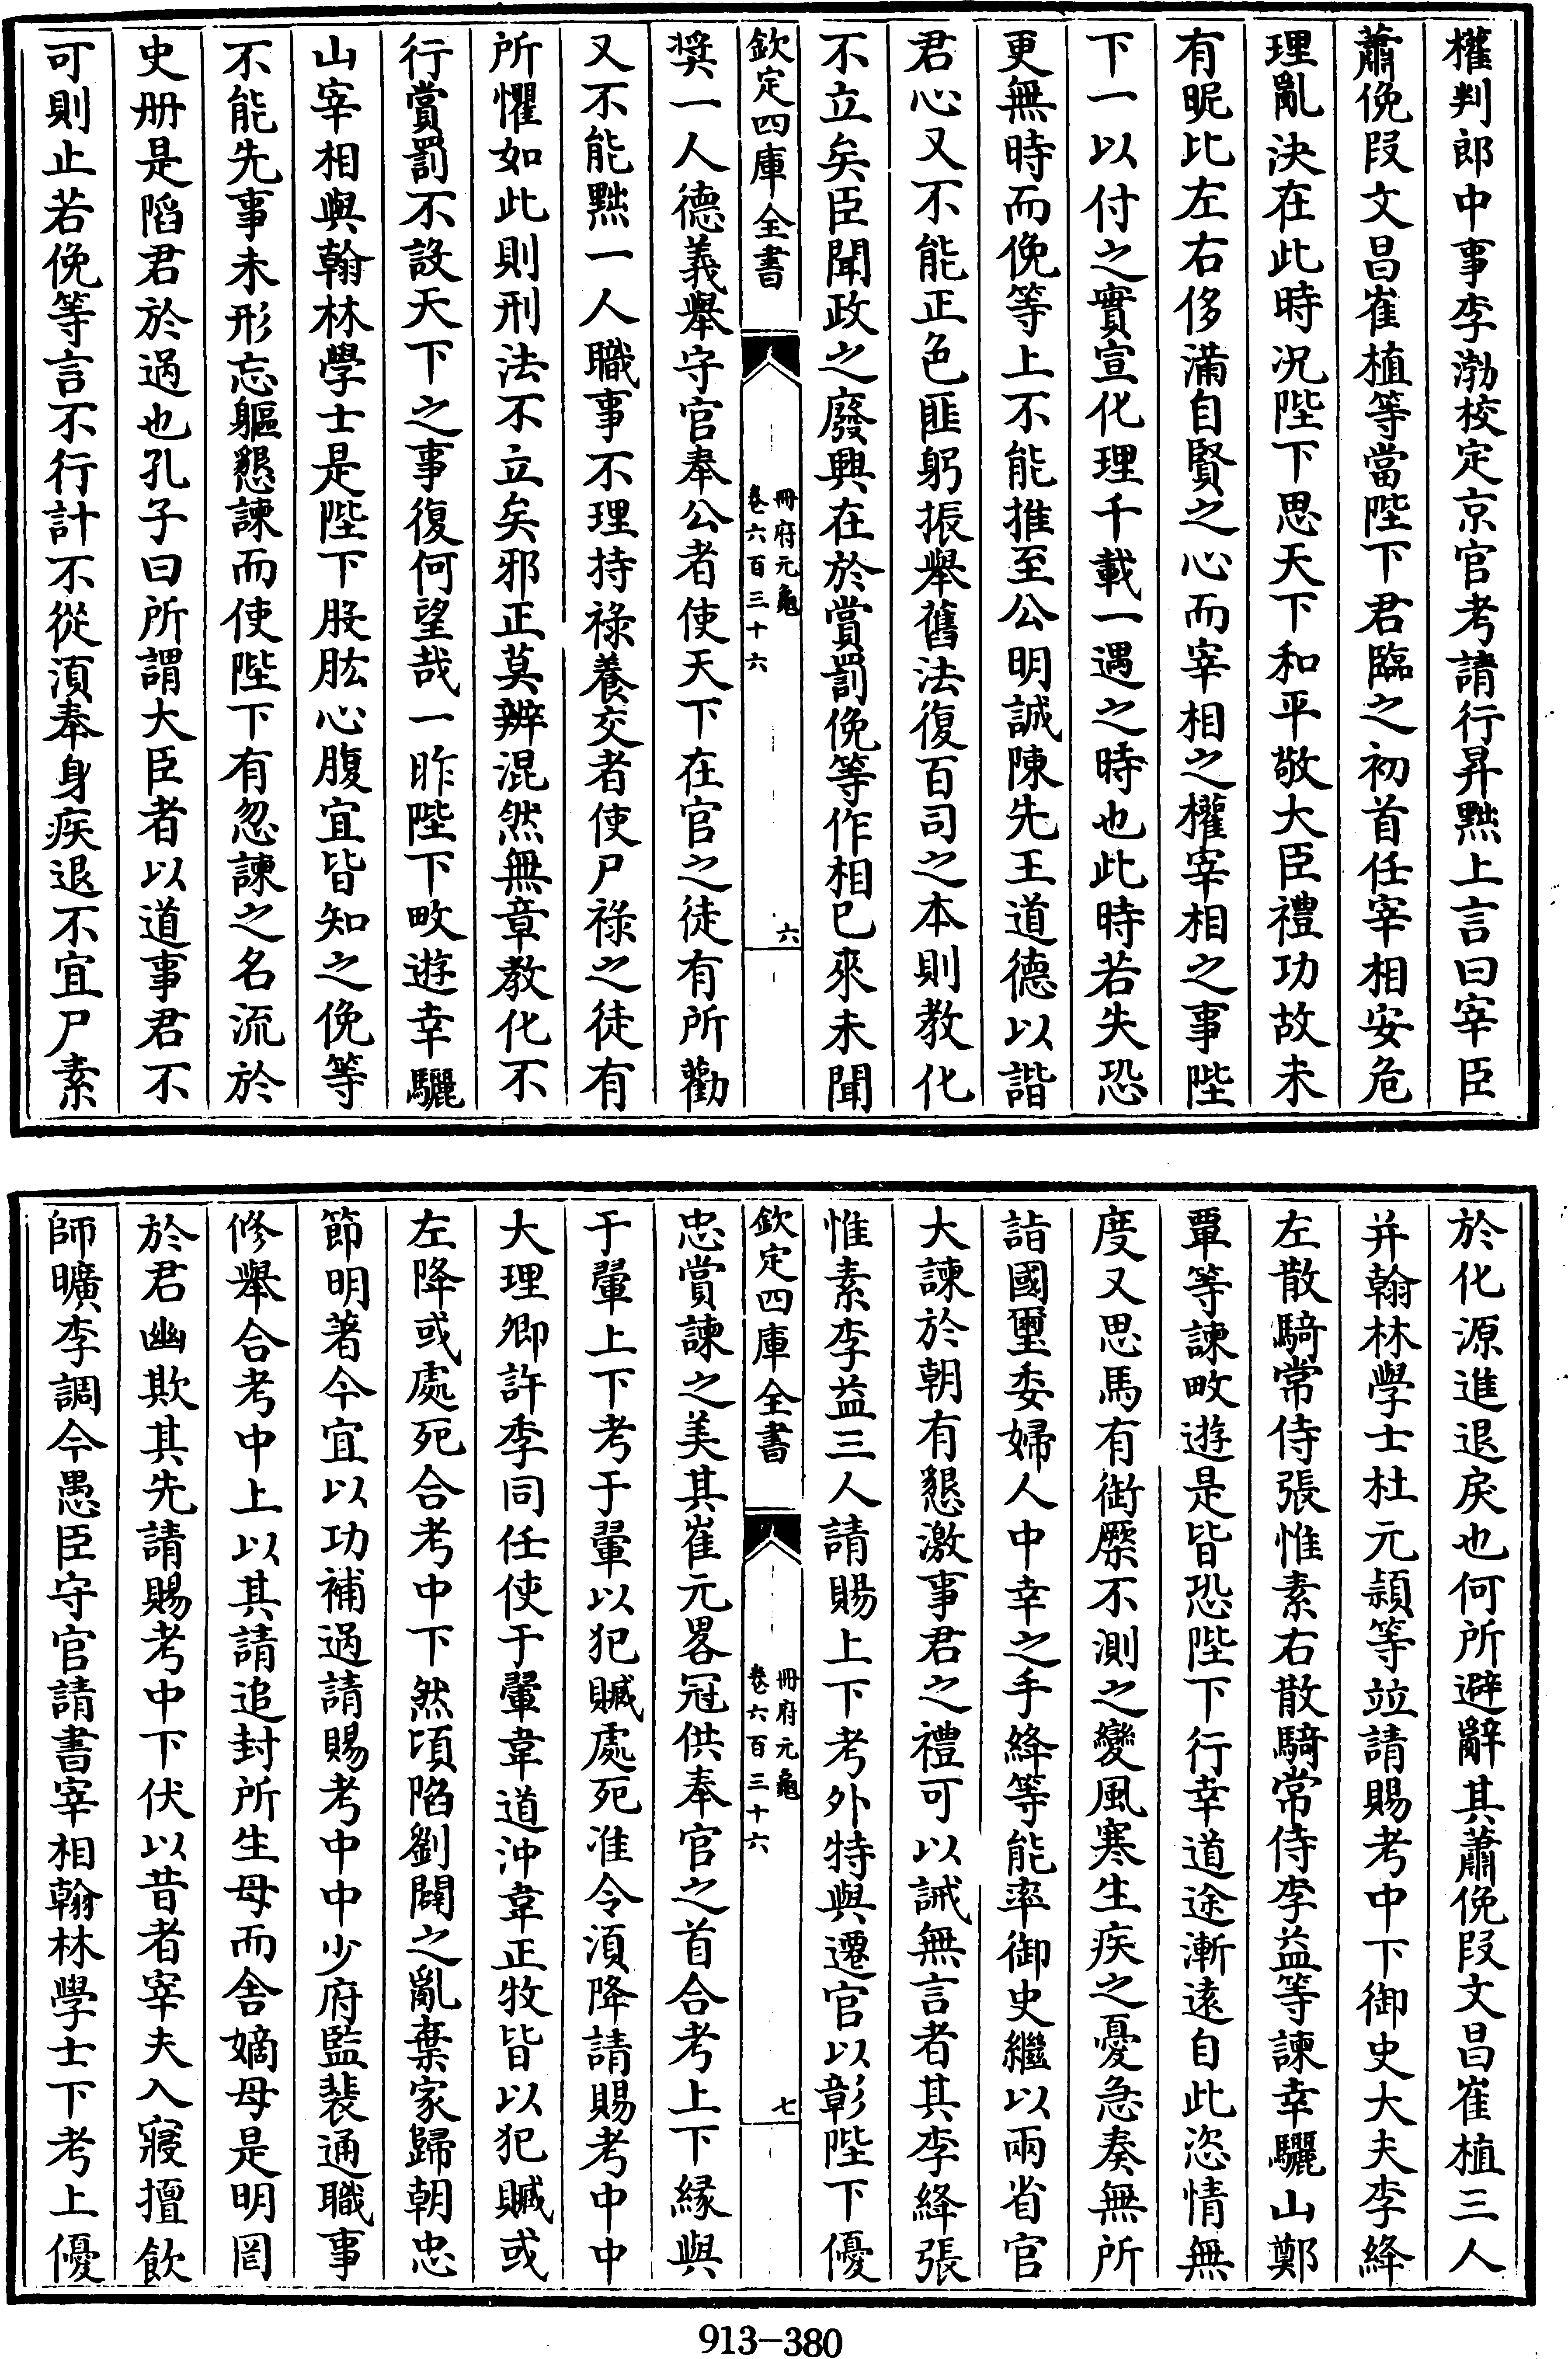 權判郎中事李渤校定京官考請行昇黜上言曰宰臣
蕭俛段文昌崔植等當陛下君臨之初首任宰相安危
理亂決在此時况陛下思天下和平敬大臣禮功故未
有昵比左右侈滿自賢之心而宰相之權宰相之事陛
下一以付之實宣化理千載一遇之時也此時若失恐
更無時而俛等上不能推至公明誠陳先王道德以諧
君心又不能正色匪躬振舉舊法復百司之本則教化
不立矣臣聞政之廢興在於賞罰俛等作相已來未聞
欽定四庫全書
冊府元龜
卷六百三十六
六
奬一人德義舉守官奉公者使天下在官之徒有所勸
又不能黜一人職事不理持祿養交者使尸祿之徒有
所懼如此則刑法不立矣邪正莫辨混然無章教化不
行賞罰不設天下之事復何望哉一昨陛下畋遊幸驪
山宰相與翰林學士是陛下股肱心腹宜皆知之俛等
不能先事未形忘軀懇諫而使陛下有忽諫之名流於
史册是䧟君於過也孔子曰所謂大臣者以道事君不
可則止若俛等言不行計不從湏奉身疾退不宜尸素
於化源進退戾也何所避辭其蕭俛段文昌崔植三人
并翰林學士杜元頴等竝請賜考中下御史大夫李絳
左散騎常侍張惟素右散騎常侍李益等諫幸驪山鄭
覃等諫畋遊是皆恐陛下行幸道途漸遠自此恣情無
度又思馬有銜橜不測之變風寒生疾之憂急奏無所
詣國璽委婦人中幸之手絳等能率御史繼以兩省官
大諫於朝有懇激事君之禮可以誡無言者其李絳張
惟素李益三人請賜上下考外特與遷官以彰陛下優
欽定四庫全書
冊府元龜
卷六百三十六
七
忠賞諫之美其崔元畧冠供奉官之首合考上下緣與
于翬上下考于翬以犯贓處死准令湏降請賜考中中
大理卿許季同任使于翬韋道沖韋正牧皆以犯贓或
左降或處死合考中下然頃陷劉闢之亂棄家歸朝忠
節明著今宜以功補過請賜考中中少府監裴通職事
修舉合考中上以其請追封所生母而舍嫡母是明罔
於君幽欺其先請賜考中下伏以昔者宰夫入寢擅飲
師曠李調今愚臣守官請書宰相翰林學士下考上優
913-380